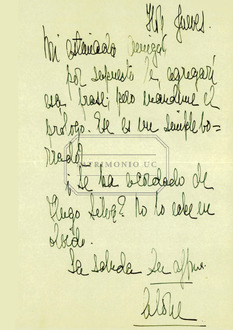 Hoy Jueves.
Mi estimado amigo,
por supuesto le agregaré
esa frase; pero mandeme el
prólogo. Ese es un simple bo=
rrador.
PATRIMONIO UC
¿ se ha acordado de
Hugo Silva? No lo eche en
olvido.
La saluda su affma.